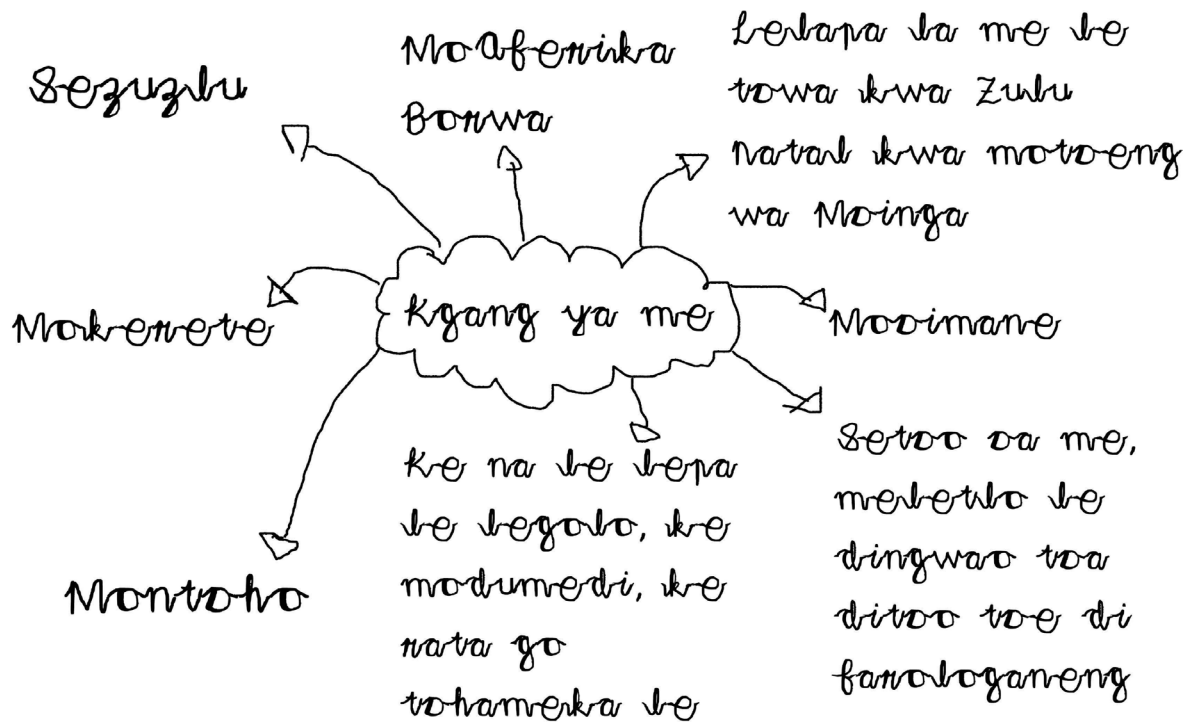 Sezuzlu
MoAferika
Borwa
Lelapa la me le
tswa kwa Zulu
Natal kwa motseng
wa Msinga
Kgang ya me
Mokerete
Mosimane
Montsho
Ke na le lepa
le legolo, ke
modumedi, ke
rata go
tshameka le
Setso sa me,
meletlo le
dingwao tsa
ditso tse di
farologaneng